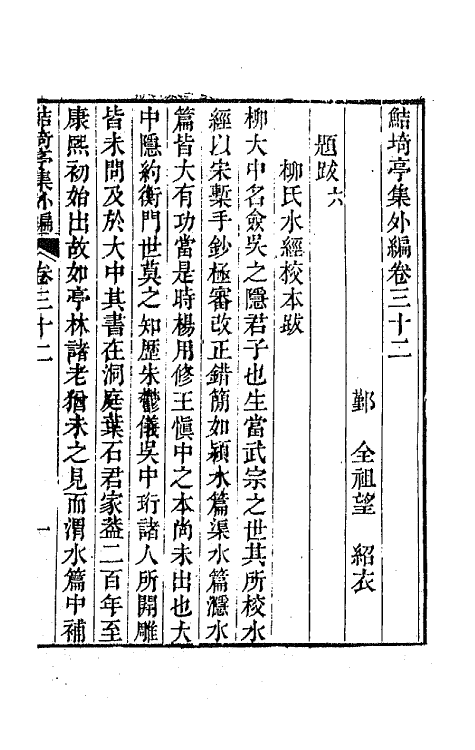 鮚埼亭集外編卷三十二
鄞　全祖望　紹衣
題跋六
柳氏水經校本跋
柳大中名僉吳之隱君子也生當武宗之世其所校水
經以宋槧手鈔極審改正錯簡如潁水篇渠水篇灅水
篇皆大有功當是時楊用修王愼中之本尚未出也大
中隱約衡門世莫之知歷朱鬱儀吳中珩諸人所開雕
皆未問及於大中其書在洞庭葉石君家葢二百年至
康熙初始出故如亭林諸老猶未之見而渭水篇中補
鮚埼亭集外編　卷三十二　一